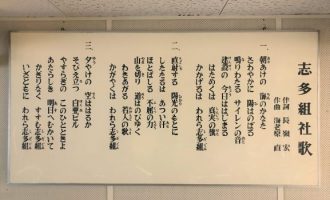 志多組社歌
作詞 長嶺宏
作曲 海老原直
一、朝あけの 海のかなた
さわやかに 陽はのぼる
鳴りわたる サイレンの音
建設の 今日ははじまる
はためくは 真実の旗
かかげるは われら志多組
二、直射する 陽光のもとに
したたるは あつい汗
ほとばしる 不屈の力
山を切り 道はのびゆく
わきあがる 若人の歌
かがやくは われら志多組
三、夕やけの 空ははるか
そびえ立つ 白亜のビル
やすらぎの このひとときよ
あたらしき 明日へむかいて
かぎりなく すすむ志多組
いざともに われら志多組